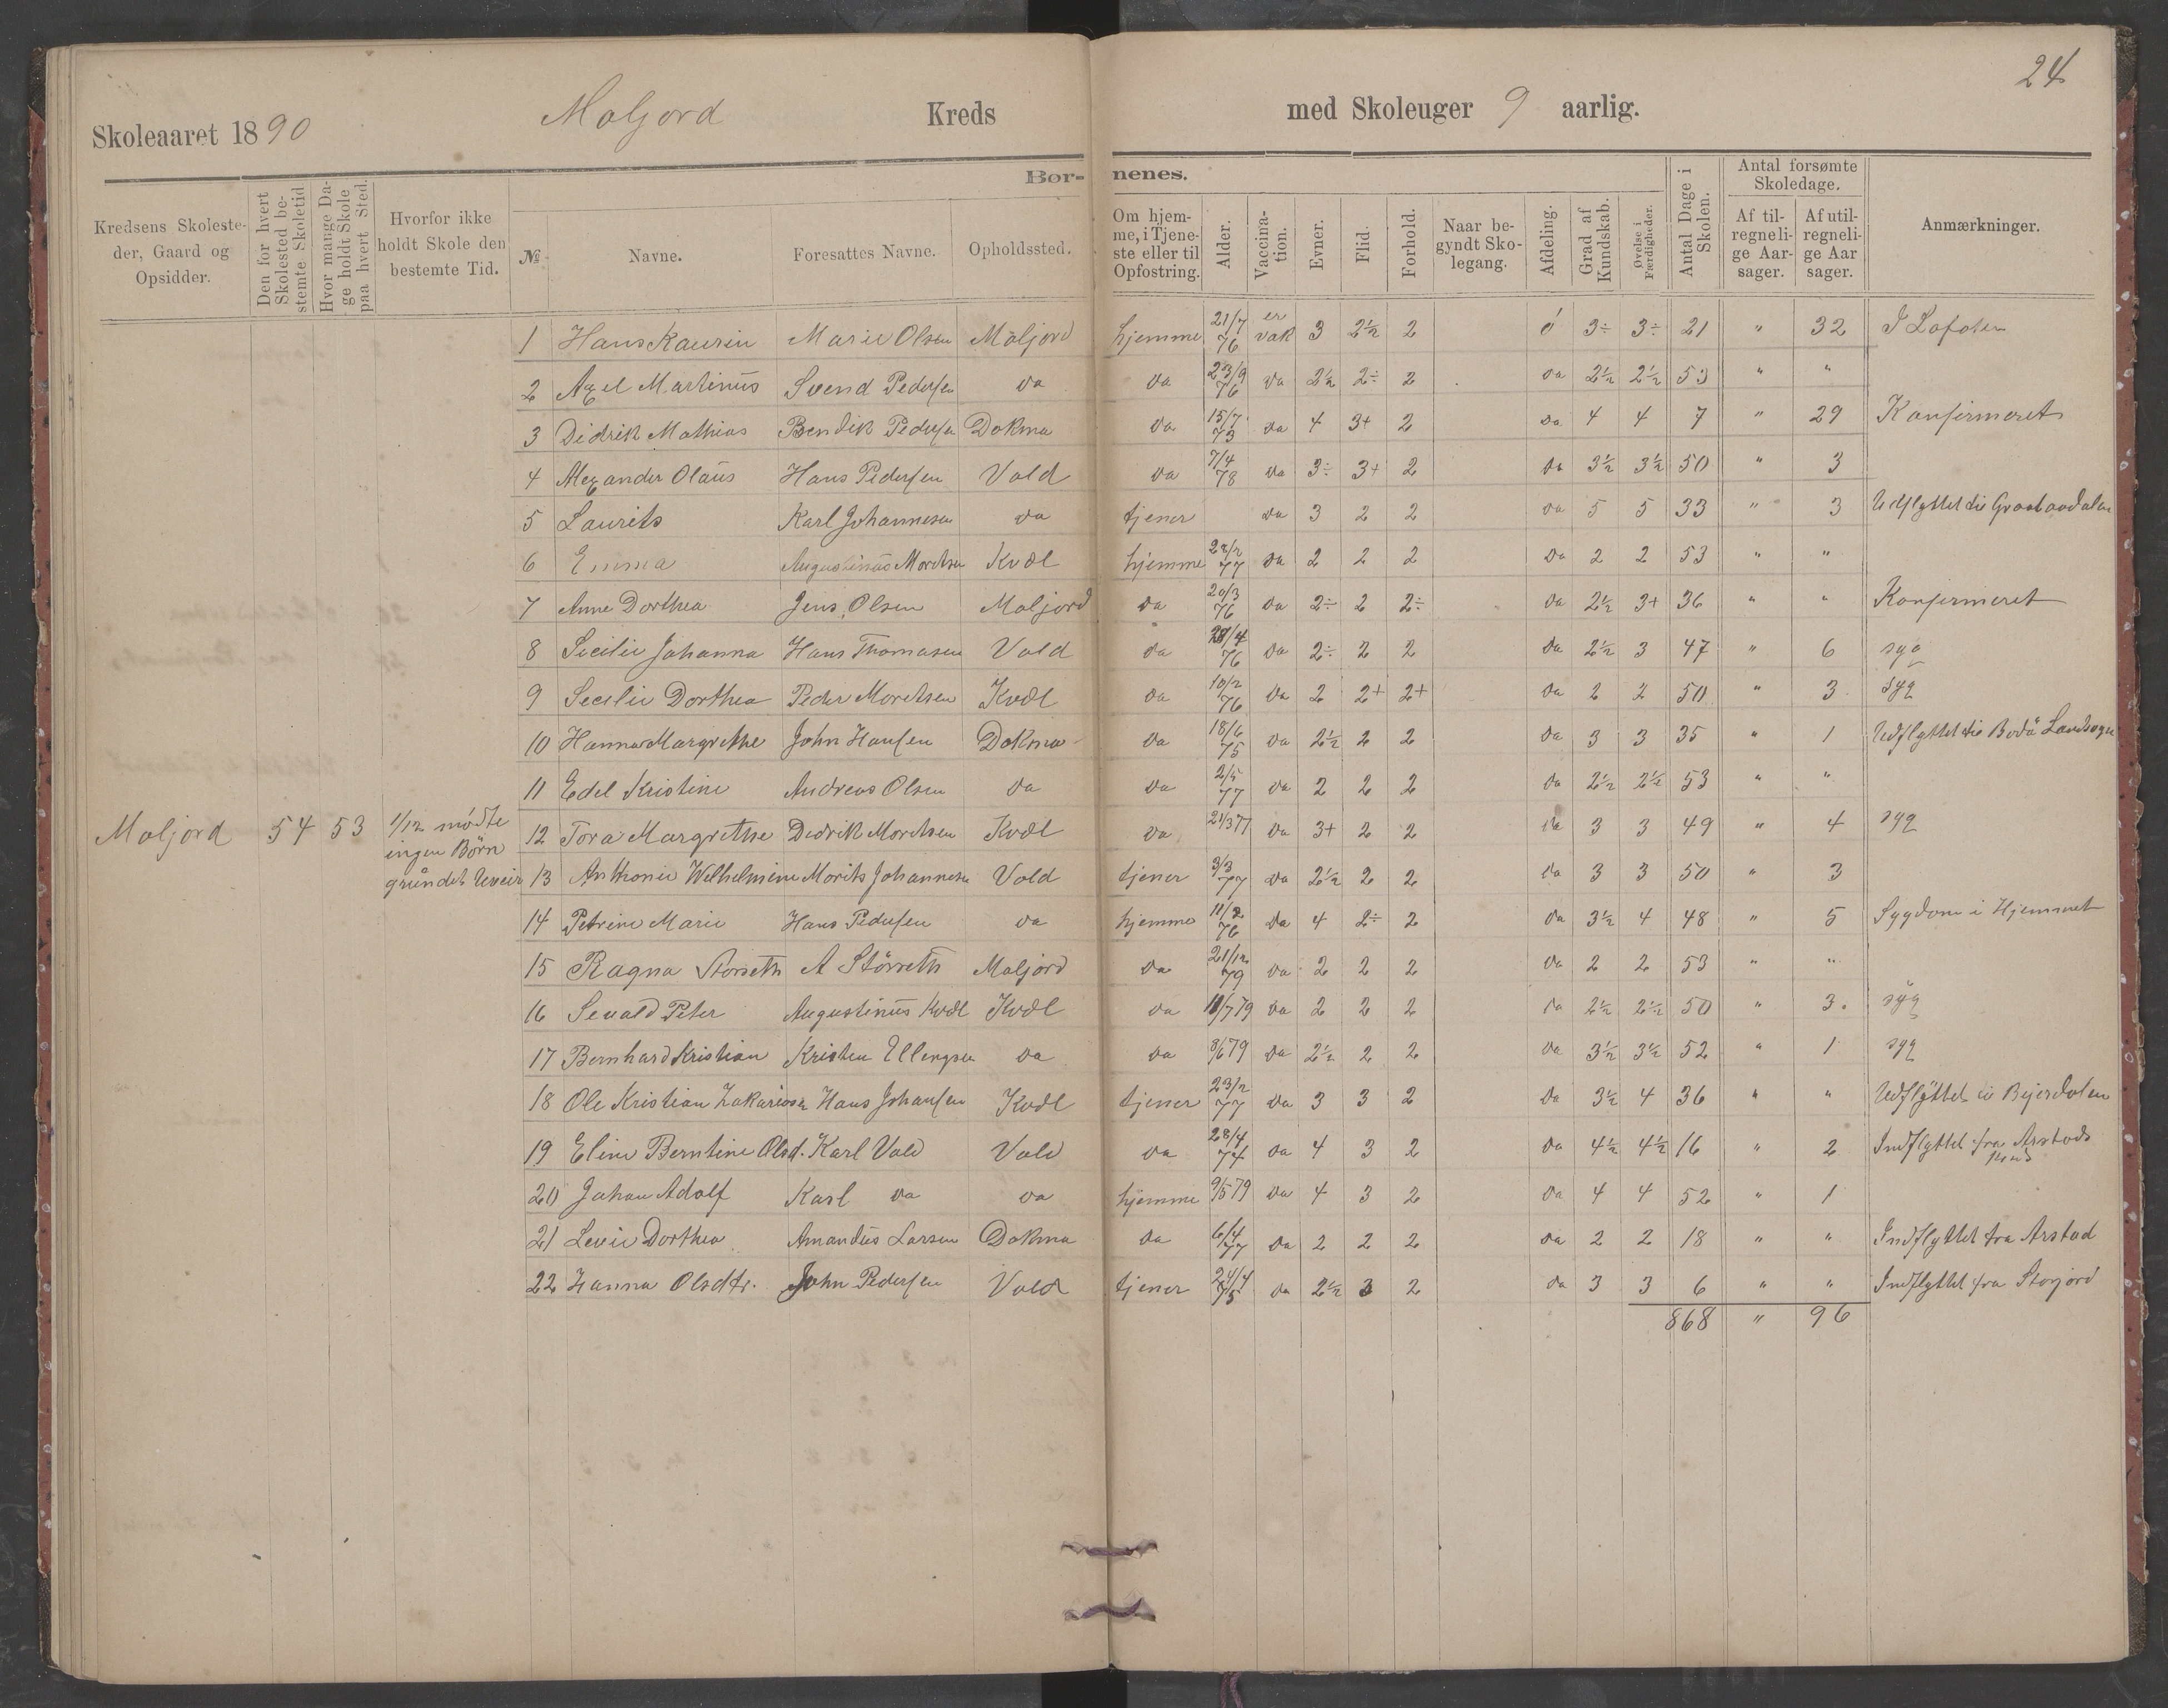 24
Skoleaaret 1890 Moljord Kreds med Skoleuger 9 aarlig.
Kredsens Skolesteder, Gaard og Opsidder.
Den for hvert Skolested bestemte Skoletid
Hvor mange Dage holdt Skole paa hvert Sted.
Hvorfor ikke holdt Skole den bestemte Tid.
Børnenes.
№
Navne.
Foresattes Navne.
Opholdssted.
Om hjemme, i Tjeneste eller til Opfostring.
Alder.
Vaccination.
Evner.
Flid.
Forhold.
Naar begyndt Skolegang.
Afdeling.
Grad af Kundskab.
Øvelse i Færdigheder.
Antal Dage i Skolen.
Antal forsømte Skoledage.
Af tilregnelige Aarsager.
Af utilregnelige Aarsager.
Anmærkninger.
Moljord 54 53 1/12 mødte ingen Børn grundet Uveir
1 Hans Kaurin Marie Olsen Moljord hjemme 21/7 76 er vak 3 2½ 2 3÷ 3÷ 21 " 32 I Lofoten
2 Axel Martinus Svend Pedersen da da 23/9 76 da 2½ 2÷ 2 da 2½ 2½ 53 " "
3 Didrik Mathias Bendik Pedersen Dokmo da 15/7 73 da 4 3+ 2 da 4 4 7 " 29 Konfirmeret
4 Alexander Olaus Hans Pedersen Vold da 7/4 78 da 3÷ 3+ 2 da 3½ 3½ 50 " 3
5 Laurits Karl Johannesen da tjener da 3 2 2 da 5 5 33 " 3 Udflyttet til
6 Emma Augustinus Moretsen Kvæl hjemme 22/2 77 da 2 2 2 da 2 2 53 " "
7 Anne Dorthea Jens Olsen Moljord da 20/3 76 da 2÷ 2 2÷ da 2½ 3+ 36 " " Konfirmeret
8 Secilie Johanna Hans Thomasen Vold da 28/4 76 da 2÷ 2 2 da 2½ 3 47 " 6 syg
9 Secilie Dorthea Peder Moretsen Kvæl da 10/2 76 da 2 2+ 2+ da 2 2 50 " 3 syg
10 Hanna Margrethe John Hansen Dokmo da 18/6 75 da 2½ 2 2 da 3 3 35 " 1 Udflyttet til Bodø Landsogn
11 Edel Kristine Andreas Olsen da da 2/5 77 da 2 2 2 da 2½ 2½ 53 " "
12 Tora Margrethe Dedrik Moretsen Kvæl da 21/3 77 da 3+ 2 2 da 3 3 49 " 4 syg
13 Anthonie Wilhelmine Morits Johannesen Vold tjener 3/3 77 da 2½ 2 2 da 3 3 50 " 3
14 Petrine Marie Hans Pedersen da hjemme 11/2 76 da 4 2÷ 2 da 3½ 4 48 " 5 Sygdom i Hjemmet
15 Ragna Storseth A Størseth Moljord da 21/12 79 da 2 2 2 da 2 2 53 " "
16 Sevald Peter Augustinus Kvæl Kvæl da 11/7 79 da 2 2 2 da 2½ 2½ 50 " 3. syg
17 Bernhard Kristian Kristen Ellengsen da da 8/6 79 da 2½ 2 2 da 3½ 3½ 52 " 1 syg
18 Ole Kristian Zakariasen Hans Johansen Kvæl tjener 23/2 77 da 3 3 2 da 3½ 4 36 " " Udflyttet til Bejerdalen
19 Eline Berntine Olsd. Karl Vold Vold da 28/4 74 da 4 3 2 da 4½ 4½ 16 " 2 Indflyttet fra Arstads Kreds
20 Johan Adolf Karl da da hjemme 9/5 79 da 4 3 2 da 4 4 52 " 1
21 Levie Dorthea Amandus Larsen Dokmo da 6/4 77 da 2 2 2 da 2 2 18 " " Indflyttet fra Arstad
22 Hanna Olsdtr. John Pedersen Vold tjener 24/4 75 da 2½ 3 2 da 3 3 6 " " Indflyttet fra Storjord
868 " 96